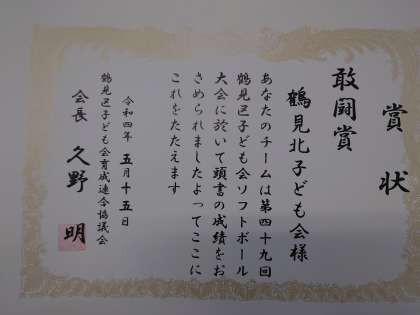 賞状
敢闘賞
鶴見北子ども会様
あなたのチームは第四十九回
鶴見区子ども会ソフトボール
大会に於いて頭書の成績をお
さめられましたよってここに
これをたたえます
令和四年 五月十五日
鶴見区子ども会育成連合協議会
会長 久野 明